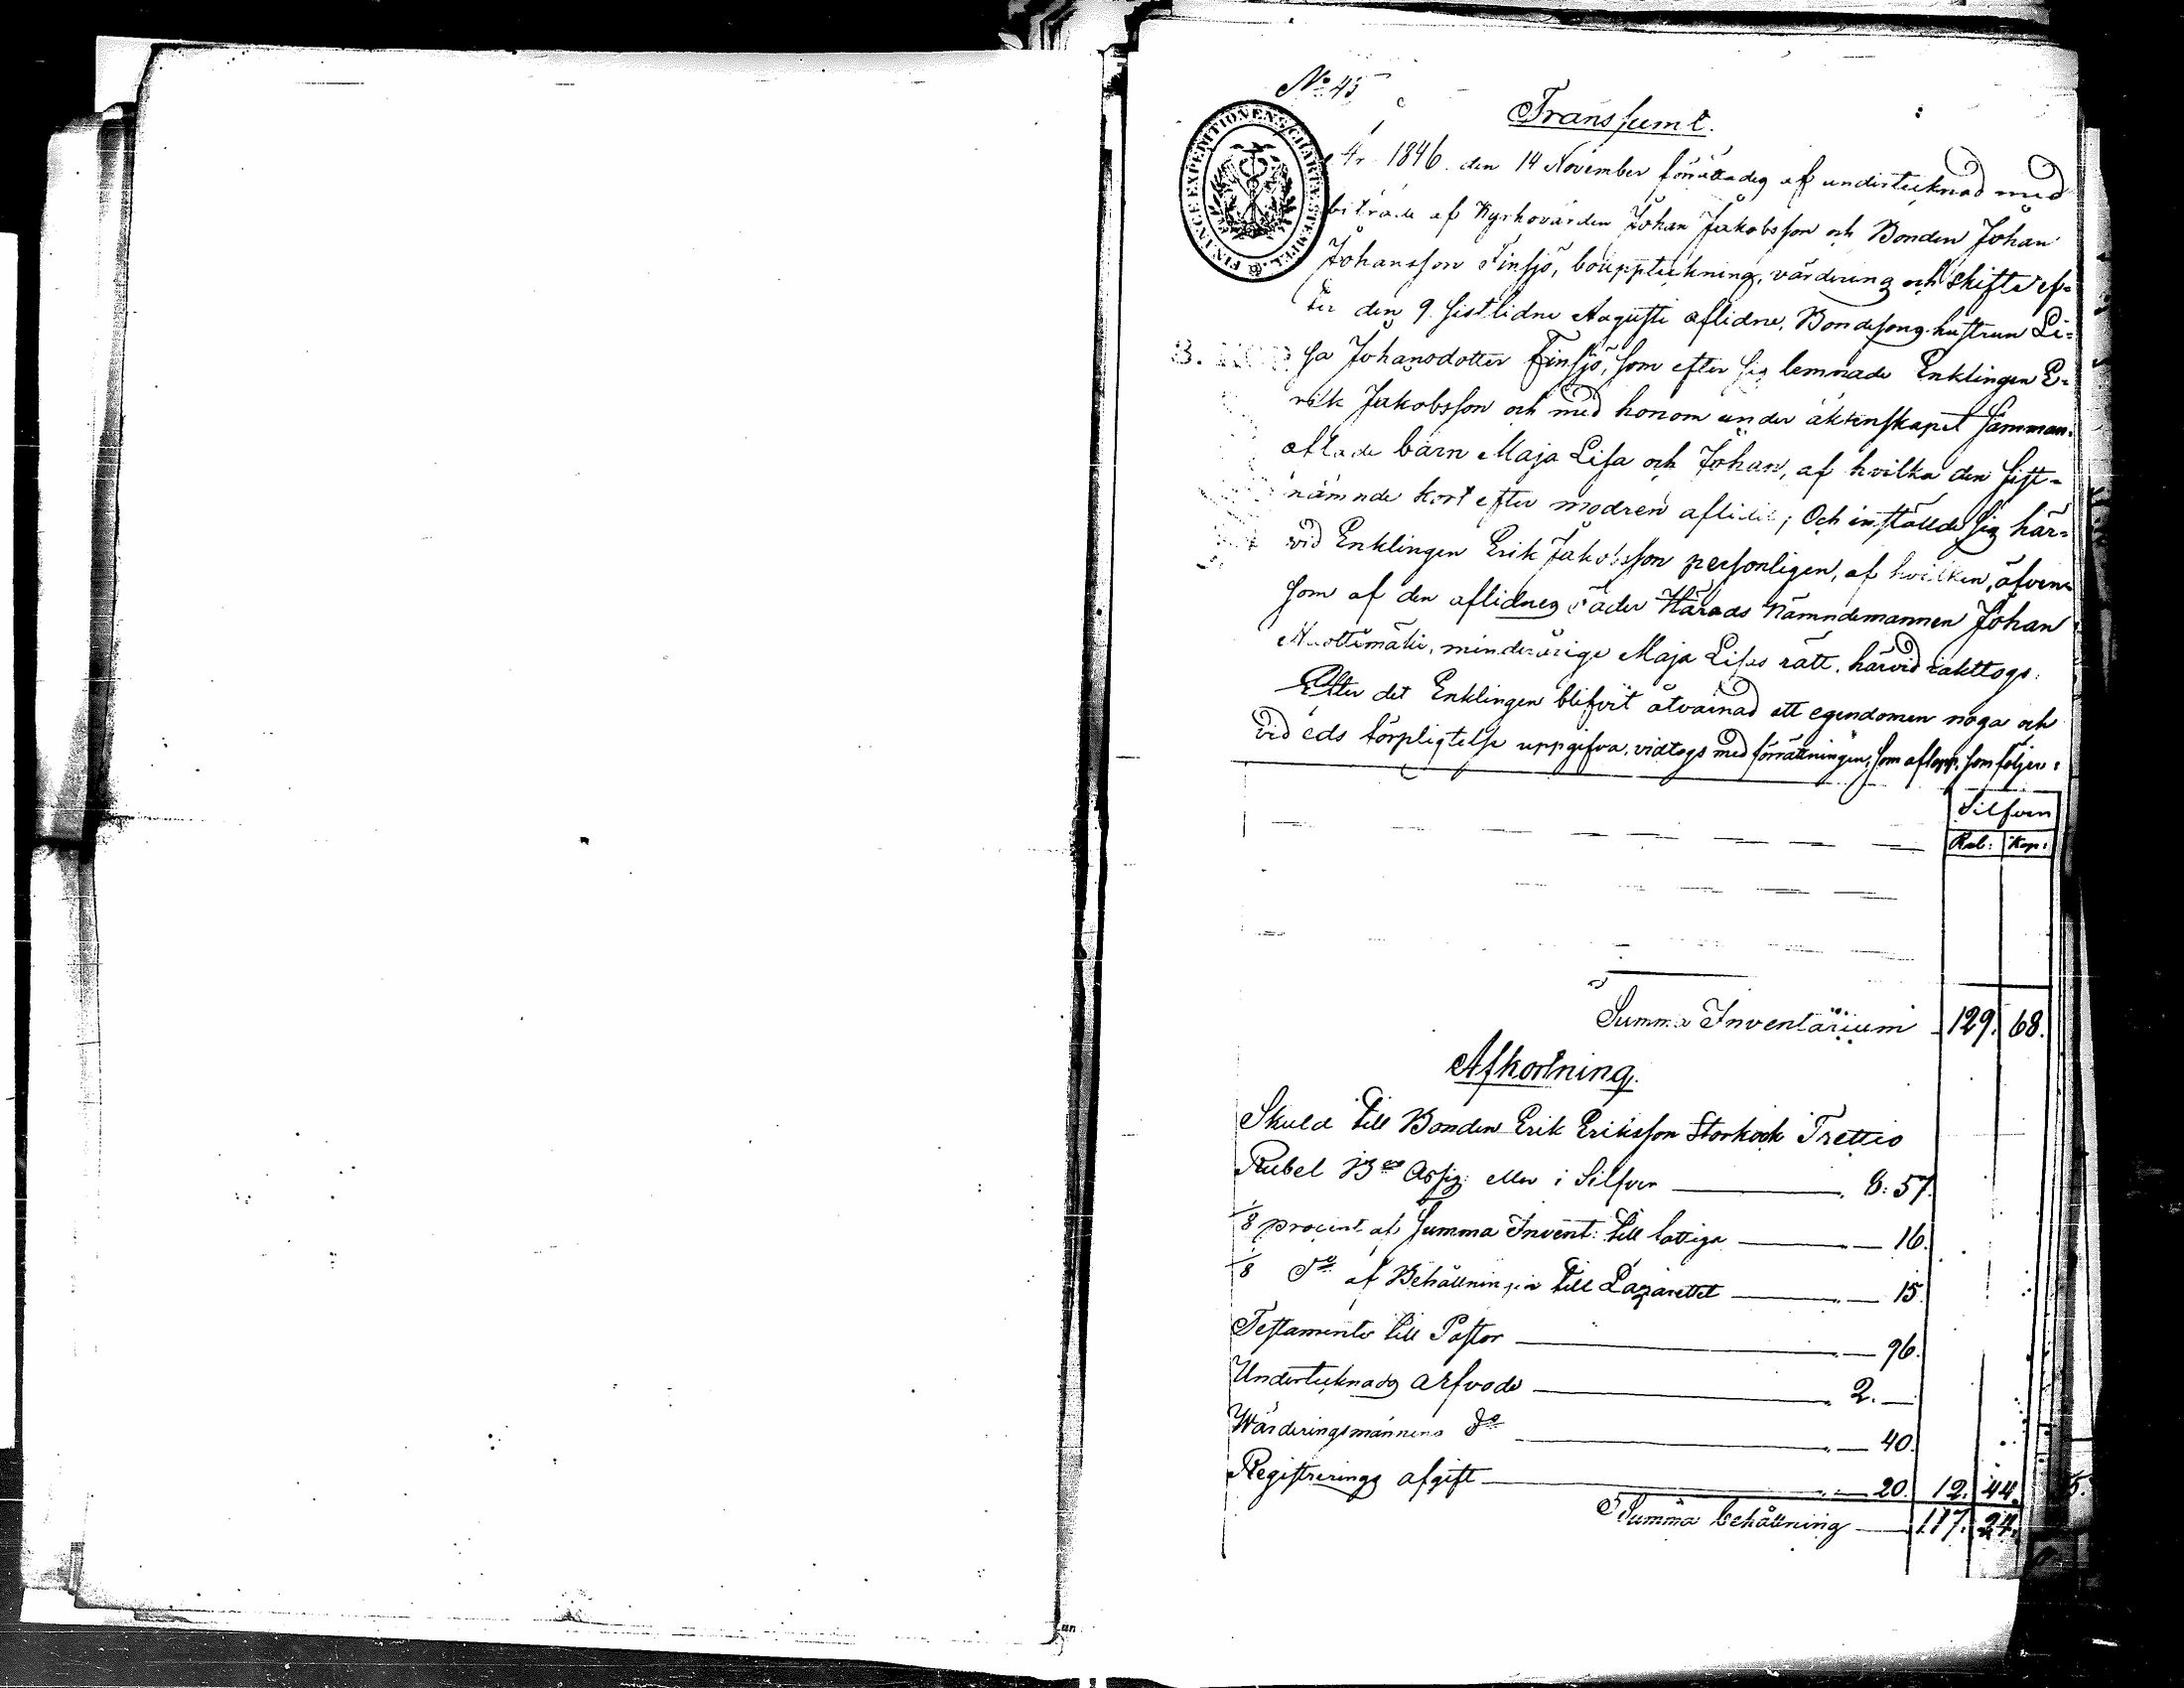 No 45
Transsumt.
FINANCE EXPEDITIONENS CHARTÆ STEMPEL.
År 1846 den 14 November förrättades af undertecknad med
biträde af Kyrkovärden Johan Jakobsson och Bonden Johan
Johansson Finsjö, bouppteckning, värdering och skifte ef-
ter den 9 sistlidne Augusti aflidne, Bondesons hustrun Li-
sa Johansdotter Finsjö, som efter sig lemnade Enklingen E-
rik Jakobsson och med honom under äktenskapet samman-
aflade barn Maja Lisa och Johan, af hvilka den sist-
nämnde kort efter modren aflidit; Och inställde sig här-
vid Enklingen Erik Jakobsson personligen, af hvilken, äfven-
som af den aflidnes fader Härads Nämndemannen Johan
minderåriga Maja Lisas rätt härvid iakttogs.
Efter det Enklingen blifvit åtvarnad att egendomen noga och
vid eds förpligtelse uppgifva, vidtogs med förrättningen, som aflopp, som följer:
Silfver
Rub: Kop:
Summa Inventarium 129. 68.
Afkortning.
Skuld till Bonden Erik Eriksson Storkock Trettio
Rubel Bco Assig: eller i Silfver 8: 57.
1/8 procent af Summa Invent: till fattiga 16.
1/8 do af Behållningen till Lazarettet 15.
Testamente till Pastor 96.
Undertecknads arfvode 2.
Wärderingsmännens do 40.
Registrerings afgift 20. 12. 44.
Summa behållning 117. 24.